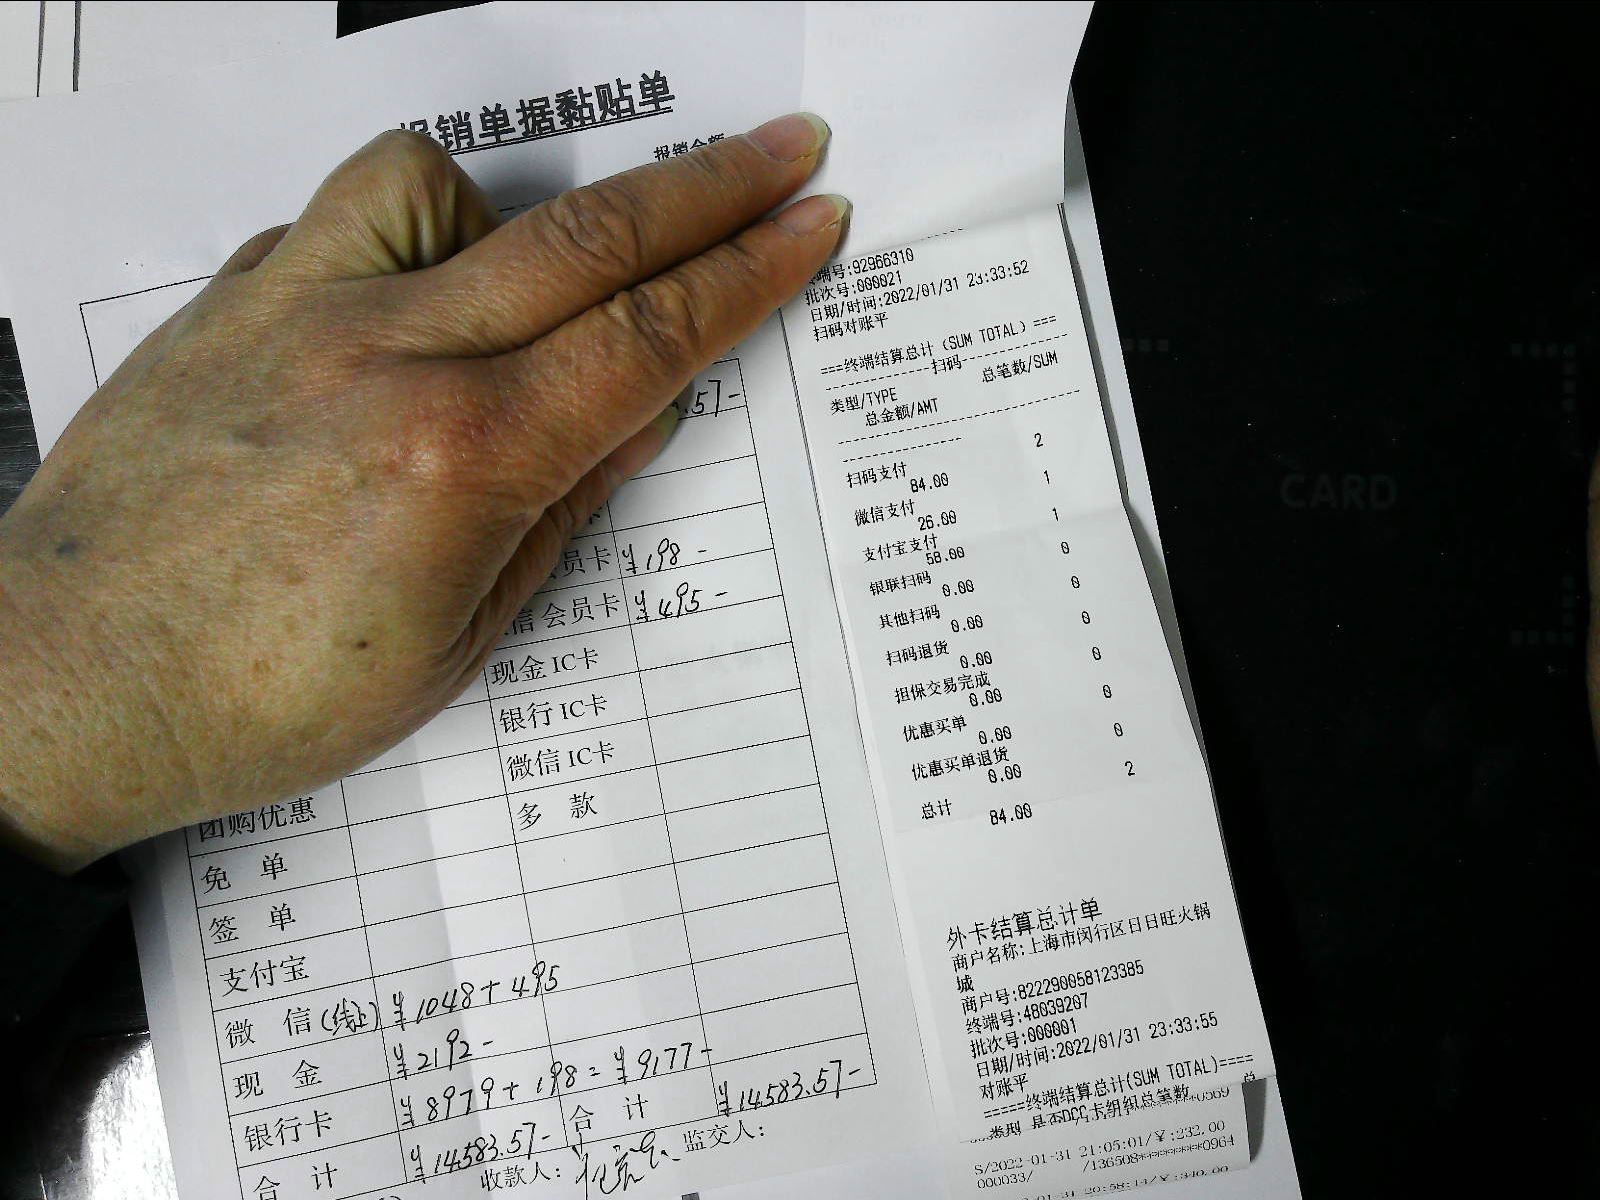 报销单据黏贴单
报销金额
.57-
员卡 ¥198-
信会员卡 ¥495-
现金IC卡
银行IC卡
微信IC卡
团购优惠 多 款
免 单
签 单
支付宝
微 信(线上) ¥1048+495
现 金 ¥2192-
银行卡 ¥8979+198=¥9177-
合 计 ¥14583.57- 合 计 ¥14583.57-
收款人: 监交人:
终端号:92966310
批次号:000021
日期/时间:2022/01/31 23:33:52
扫码对账平
===终端结算总计(SUM TOTAL)===
----------扫码----------
类型/TYPE 总笔数/SUM
总金额/AMT
扫码支付 2
84.00
微信支付 1
26.00
支付宝支付 1
58.00
银联扫码 0
0.00
其他扫码 0
0.00
扫码退货 0
0.00
担保交易完成 0
0.00
优惠买单 0
0.00
优惠买单退货 0
0.00
总计 2
84.00
外卡结算总计单
商户名称:上海市闵行区日日旺火锅
城
商户号:822290058123385
终端号:48039207
批次号:000001
日期/时间:2022/01/31 23:33:55
对账平
=====终端结算总计(SUM TOTAL)====
类型 是否DCC卡组织总笔数 总
S/2022-01-31 21:05:01/¥:232.00
000033/ /136508*********0964
01-31 20:58:14/¥:340.00